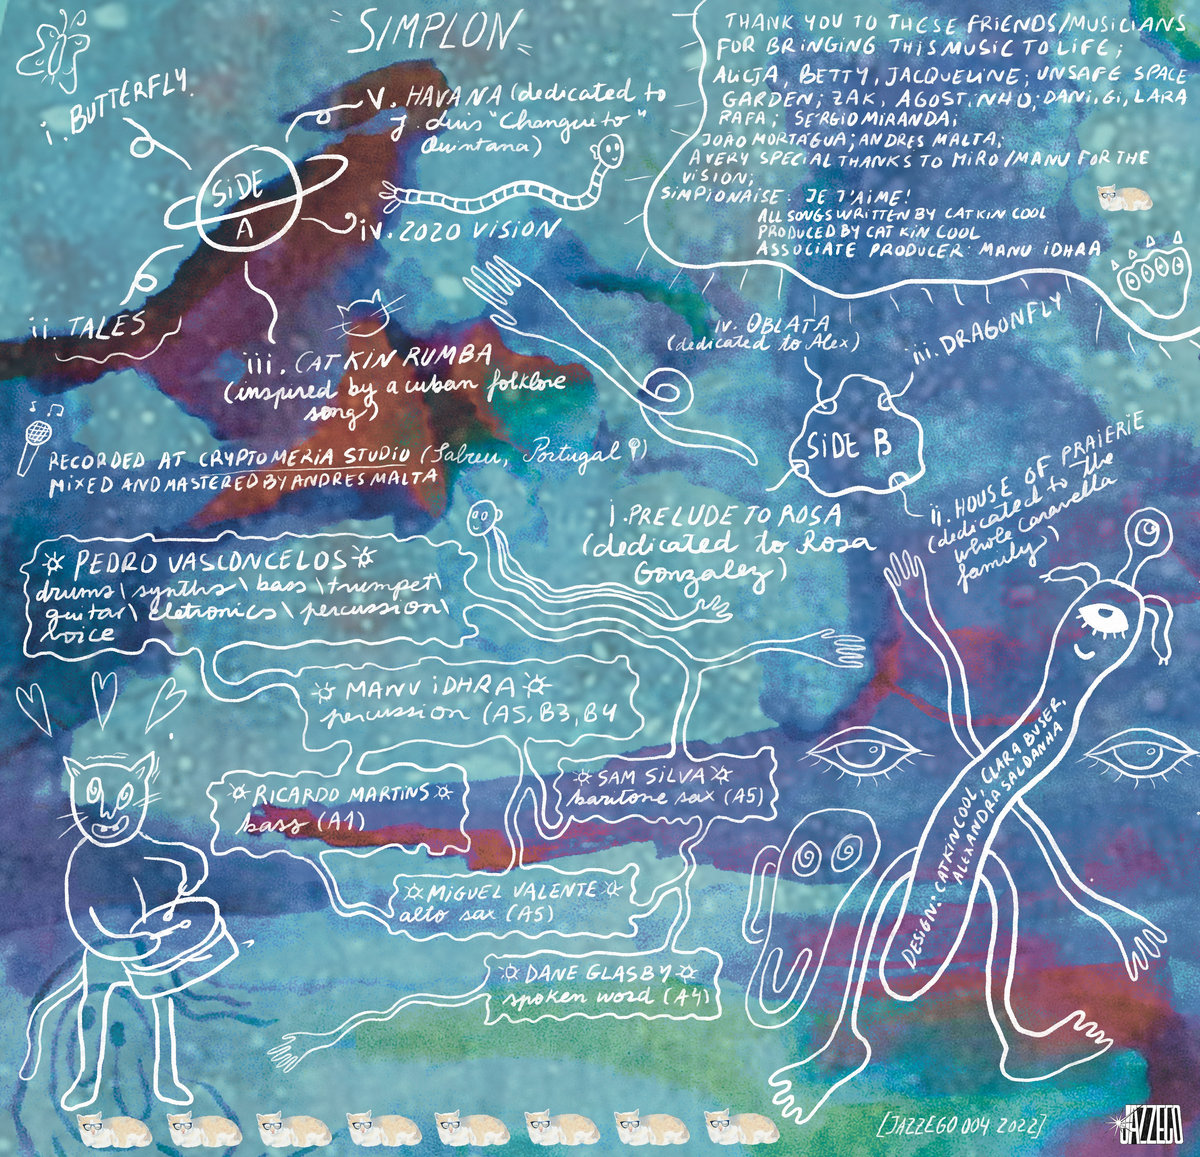 SIMPLON
i. BUTTERFLY.
SIDE
A
V. HAVANA (dedicated to
J. Luis "Changuito"
Quintana)
iv. 2020 VISION
ii. TALES
iii. CATKIN RUMBA
(inspired by a cuban folklore
song)
THANK YOU TO THESE FRIENDS/MUSICIANS
FOR BRINGING THIS MUSIC TO LIFE;
ALICJA, BETTY, JACQUELINE; UNSAFE SPACE
GARDEN; ZAK, AGOSTINHO; DANI, GI, LARA
RAFA; SERGIO MIRANDA;
JOÃO MORTÁGUA; ANDRES MALTA;
A VERY SPECIAL THANKS TO MIRO/MANU FOR THE
VISION;
SIMPIONAISE: JE T'AIME!
ALL SONGS WRITTEN BY CATKIN COOL
PRODUCED BY CATKIN COOL
ASSOCIATE PRODUCER: MANU IDHRA
RECORDED AT CRYPTOMERIA STUDIO (Sabreu, Portugal)
MIXED AND MASTERED BY ANDRES MALTA
iv. OBLATA
(dedicated to Alex)
iii. DRAGONFLY
SIDE B
ii. HOUSE OF PRAIERIE
(dedicated to the
whole Caravella
family)
i. PRELUDE TO ROSA
(dedicated to Rosa
Gonzalez)
PEDRO VASCONCELOS
drums \ synths \ bass \ trumpet \
guitar \ eletronics \ percussion \
voice
MANU IDHRA
percussion (A5, B3, B4
RICARDO MARTINS
bass (A1)
SAM SILVA
baritone sax (A5)
MIGUEL VALENTE
alto sax (A5)
DANE GLASBY
spoken word (A4)
DESIGN: CATKIN COOL, CLARA BUSER,
ALEXANDRA SALDANHA
[JAZZEGO 004 2022]
JAZZEGO